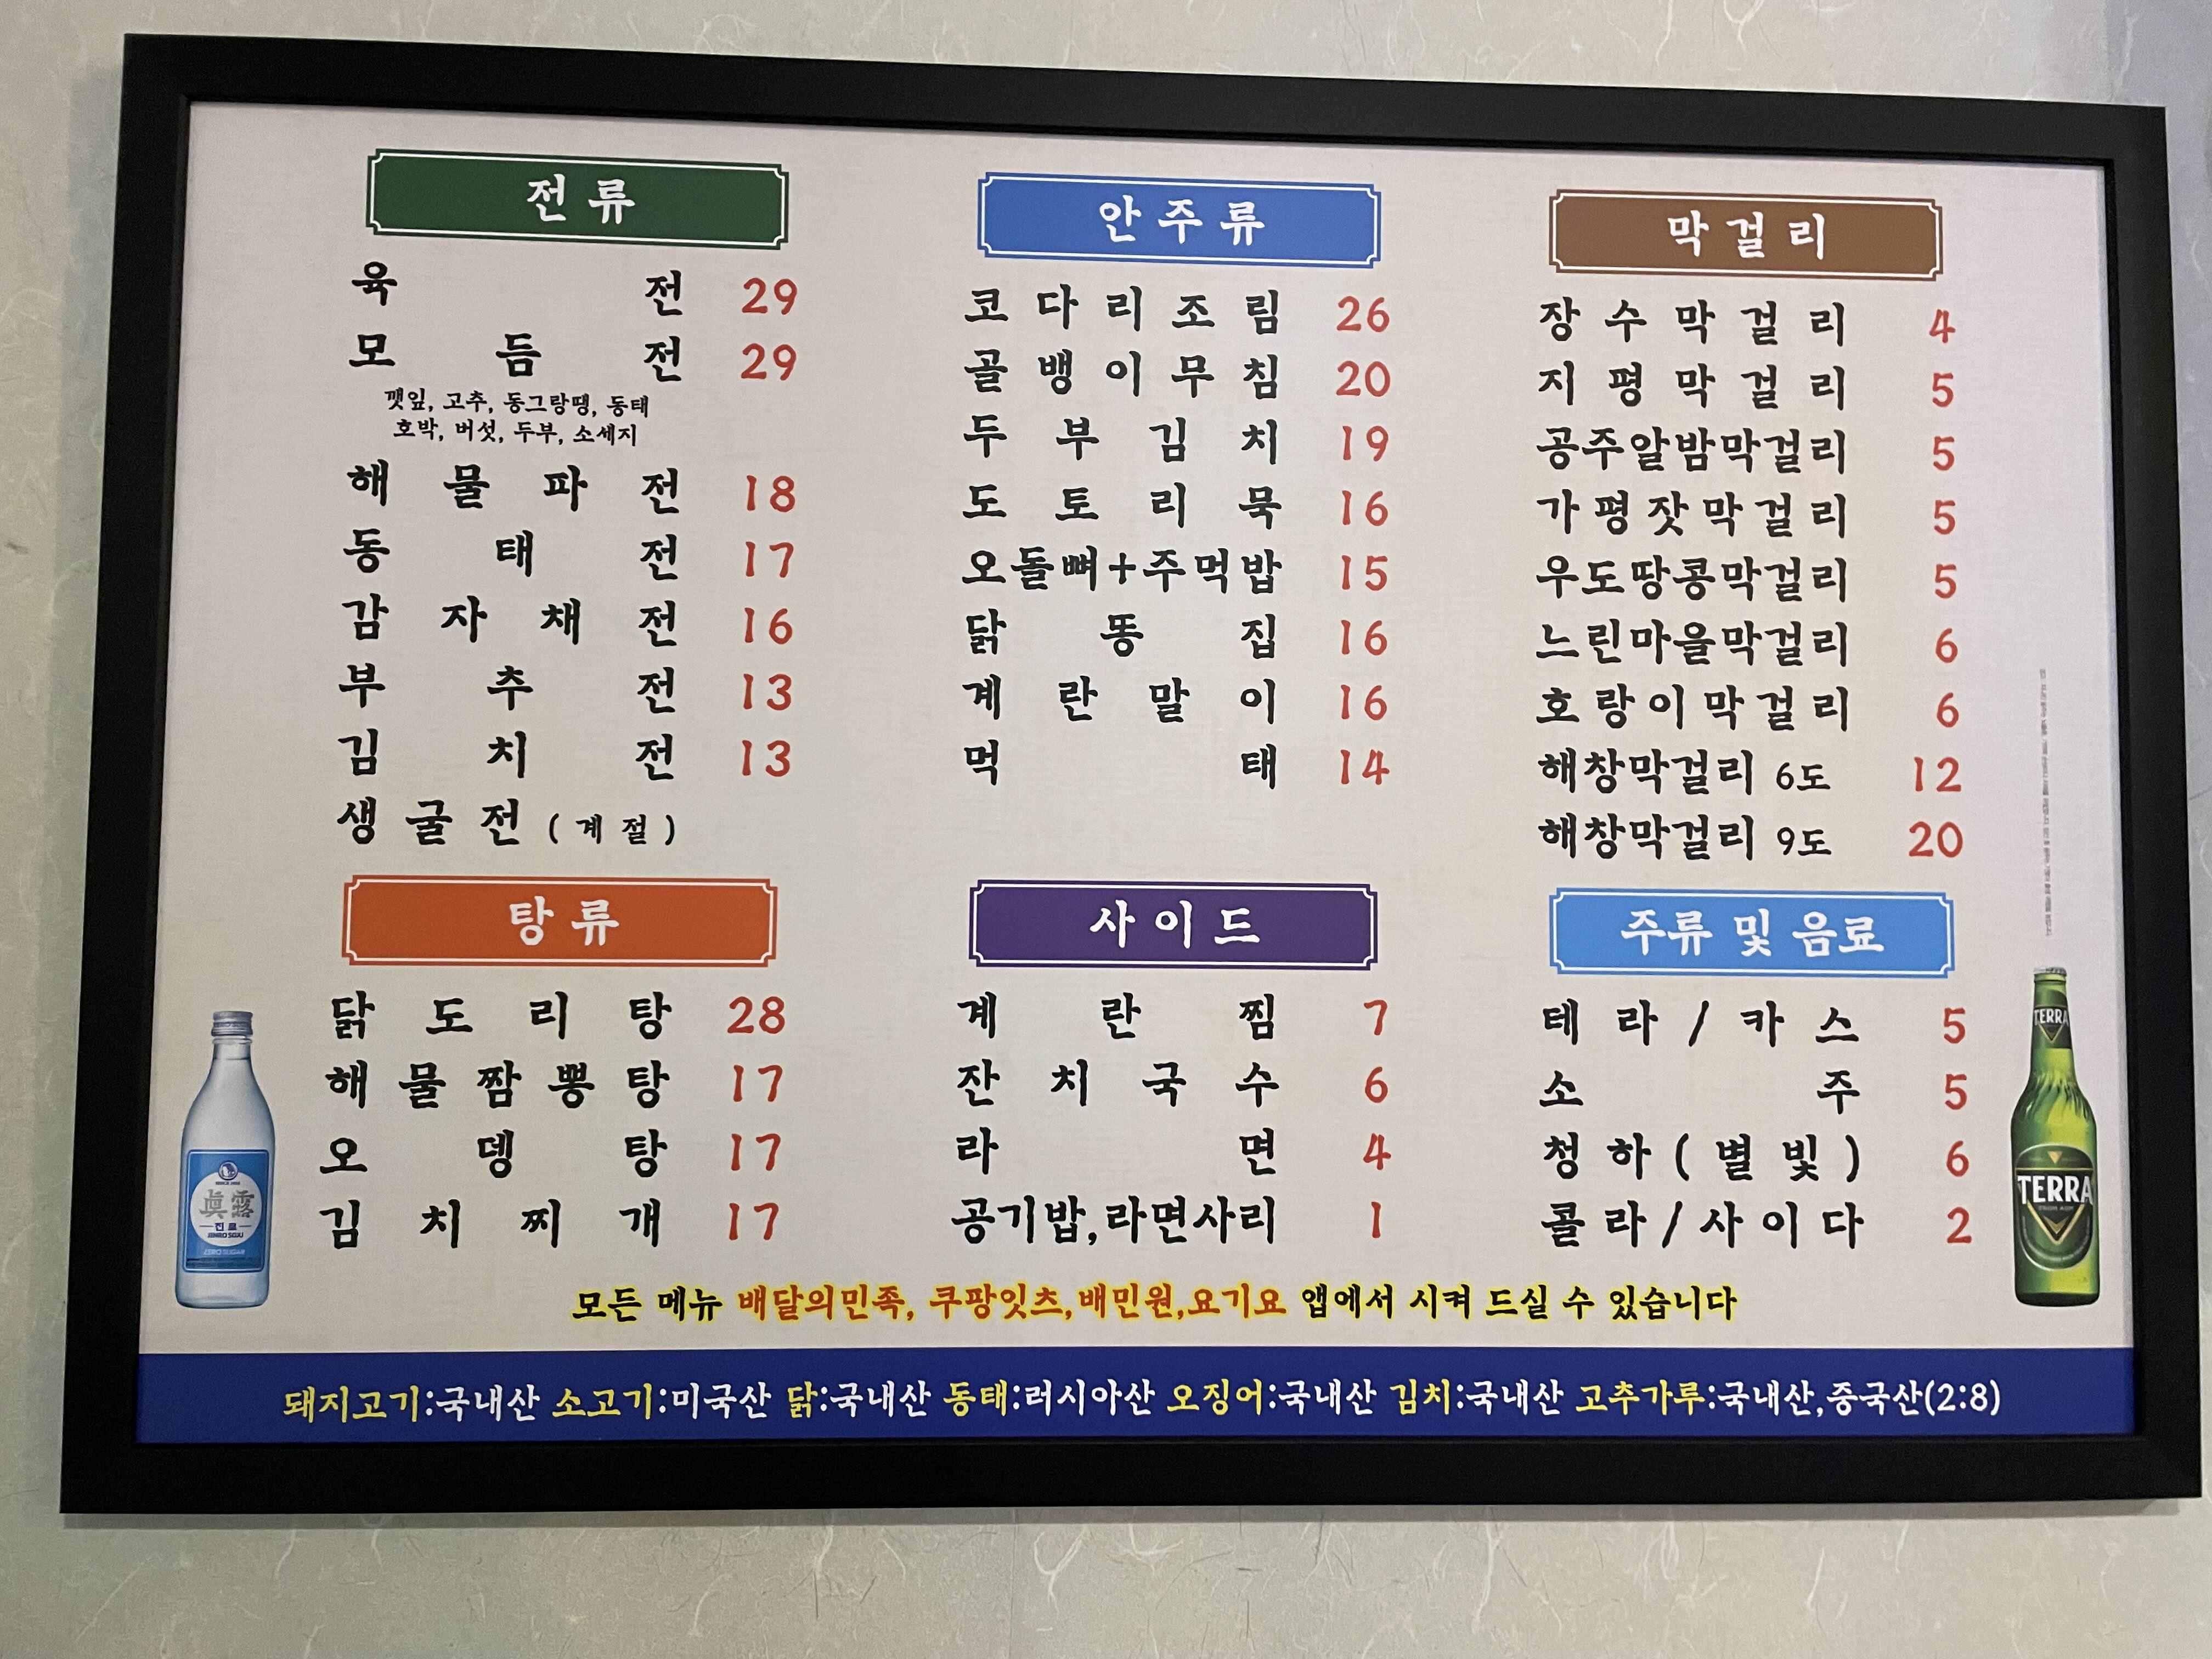 전류
육전 29
모듬전 29
깻잎, 고추, 동그랑땡, 동태
호박, 버섯, 두부, 소세지
해물파전 18
동태전 17
감자채전 16
부추전 13
김치전 13
생굴전 (계절)
안주류
코다리조림 26
골뱅이무침 20
두부김치 19
도토리묵 16
오돌뼈+주먹밥 15
닭똥집 16
계란말이 16
먹태 14
막걸리
장수막걸리 4
지평막걸리 5
공주알밤막걸리 5
가평잣막걸리 5
우도땅콩막걸리 5
느린마을막걸리 6
호랑이막걸리 6
해창막걸리 6도 12
해창막걸리 9도 20
탕류
닭도리탕 28
해물짬뽕탕 17
오뎅탕 17
김치찌개 17
사이드
계란찜 7
잔치국수 6
라면 4
공기밥,라면사리 1
주류 및 음료
테라/카스 5
소주 5
청하(별빛) 6
콜라/사이다 2
眞露
진로
JINRO SOJU
ZERO SUGAR
TERRA
TERRA
모든 메뉴 배달의민족, 쿠팡잇츠,배민원,요기요 앱에서 시켜 드실 수 있습니다
돼지고기:국내산 소고기:미국산 닭:국내산 동태:러시아산 오징어:국내산 김치:국내산 고추가루:국내산,중국산(2:8)